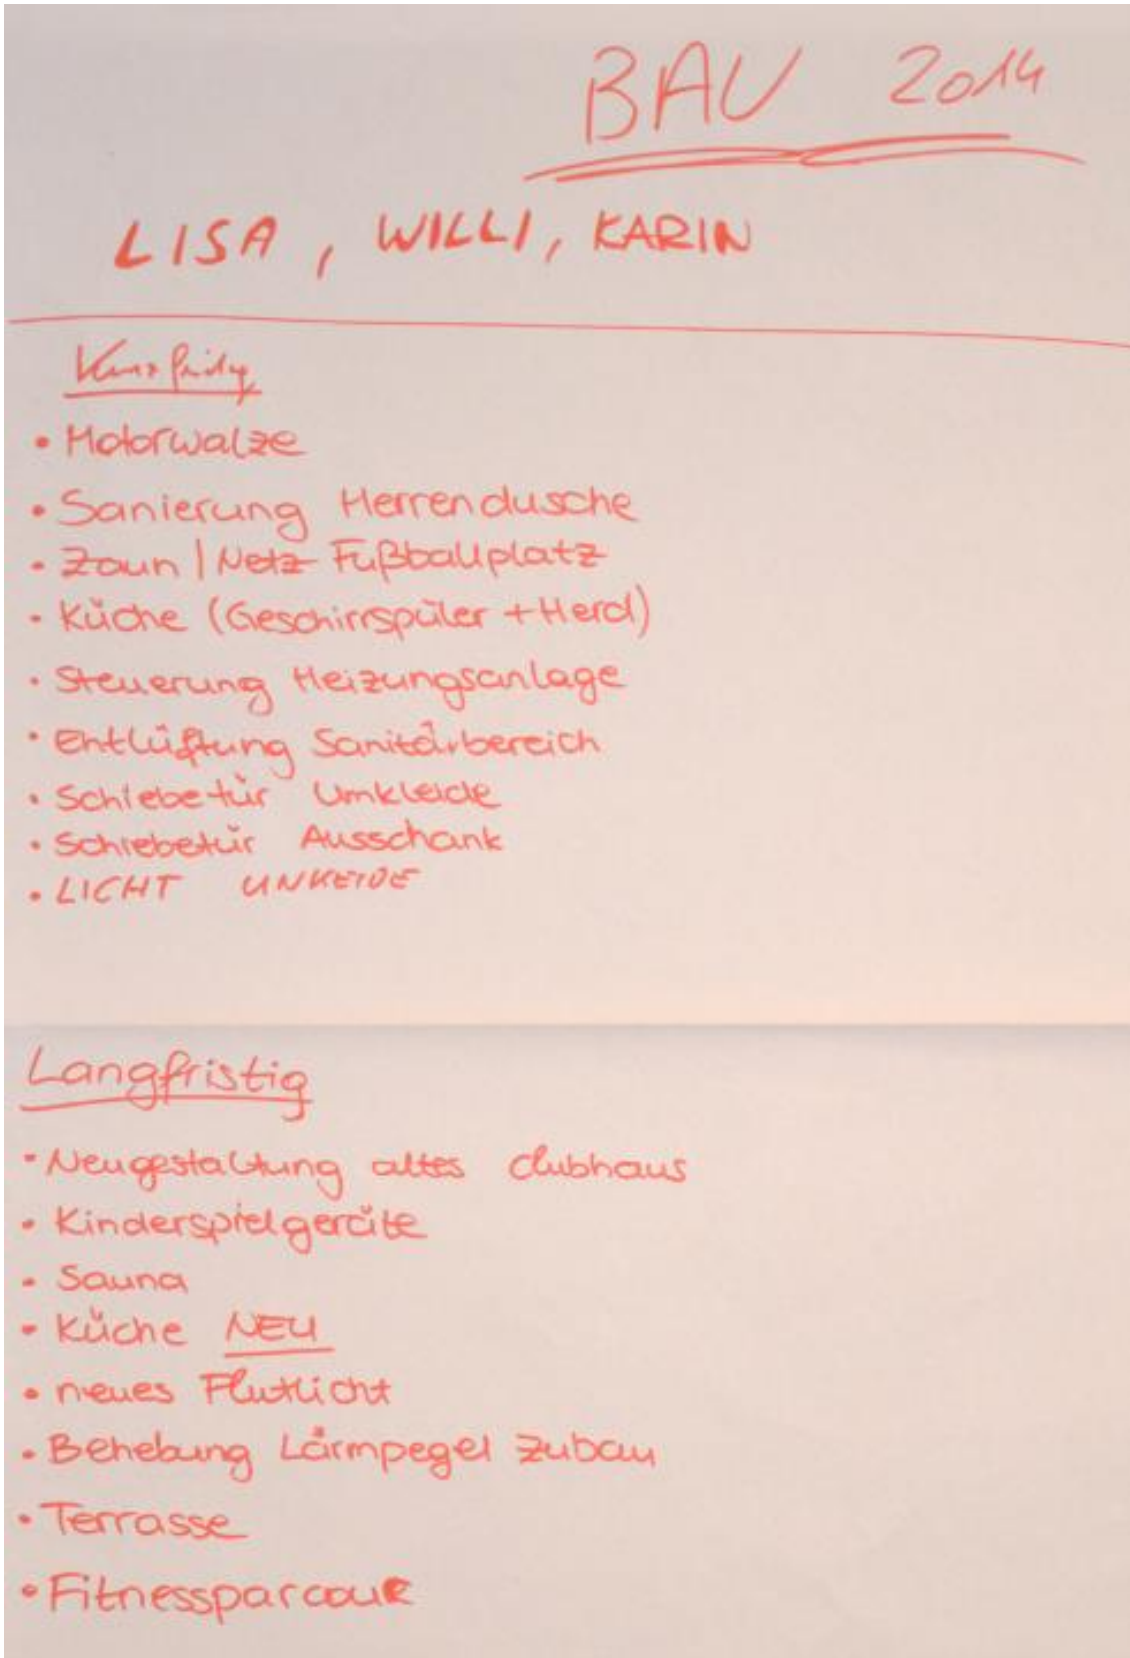 BAU 2014
LISA, WILLI, KARIN
Kurzfristig
• Motorwalze
• Sanierung Herrendusche
• Zaun | Netz Fußballplatz
• Küche (Geschirrspüler + Herd)
• Steuerung Heizungsanlage
• Entlüftung Sanitärbereich
• Schiebetür Umkleide
• Schiebetür Ausschank
• LICHT UNKEIDE
Langfristig
• Neugestaltung altes Clubhaus
• Kinderspielgeräte
• Sauna
• Küche NEU
• neues Flutlicht
• Behebung Lärmpegel Zubau
• Terrasse
• Fitnessparcour